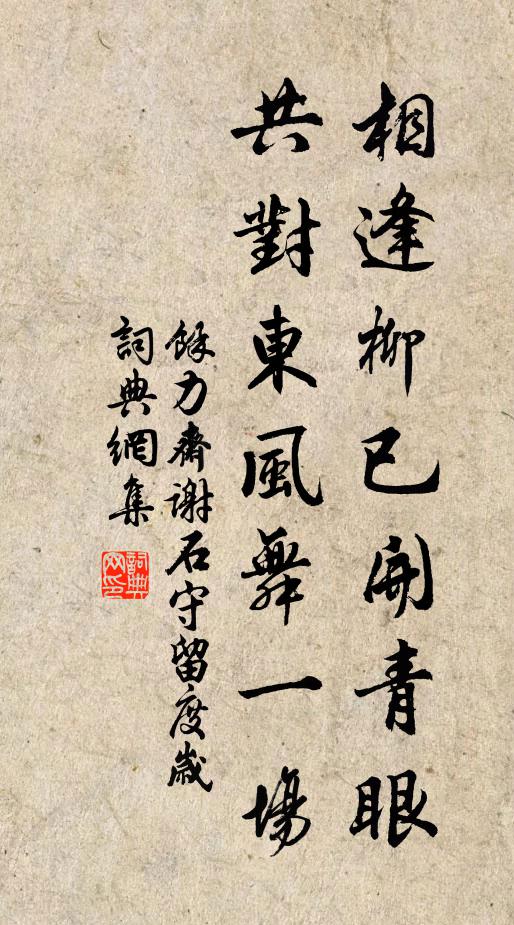 相逢柳已開青眼
共對東風舞一場
餘力齋謝石守留度歲
詞典網集
詞典网印